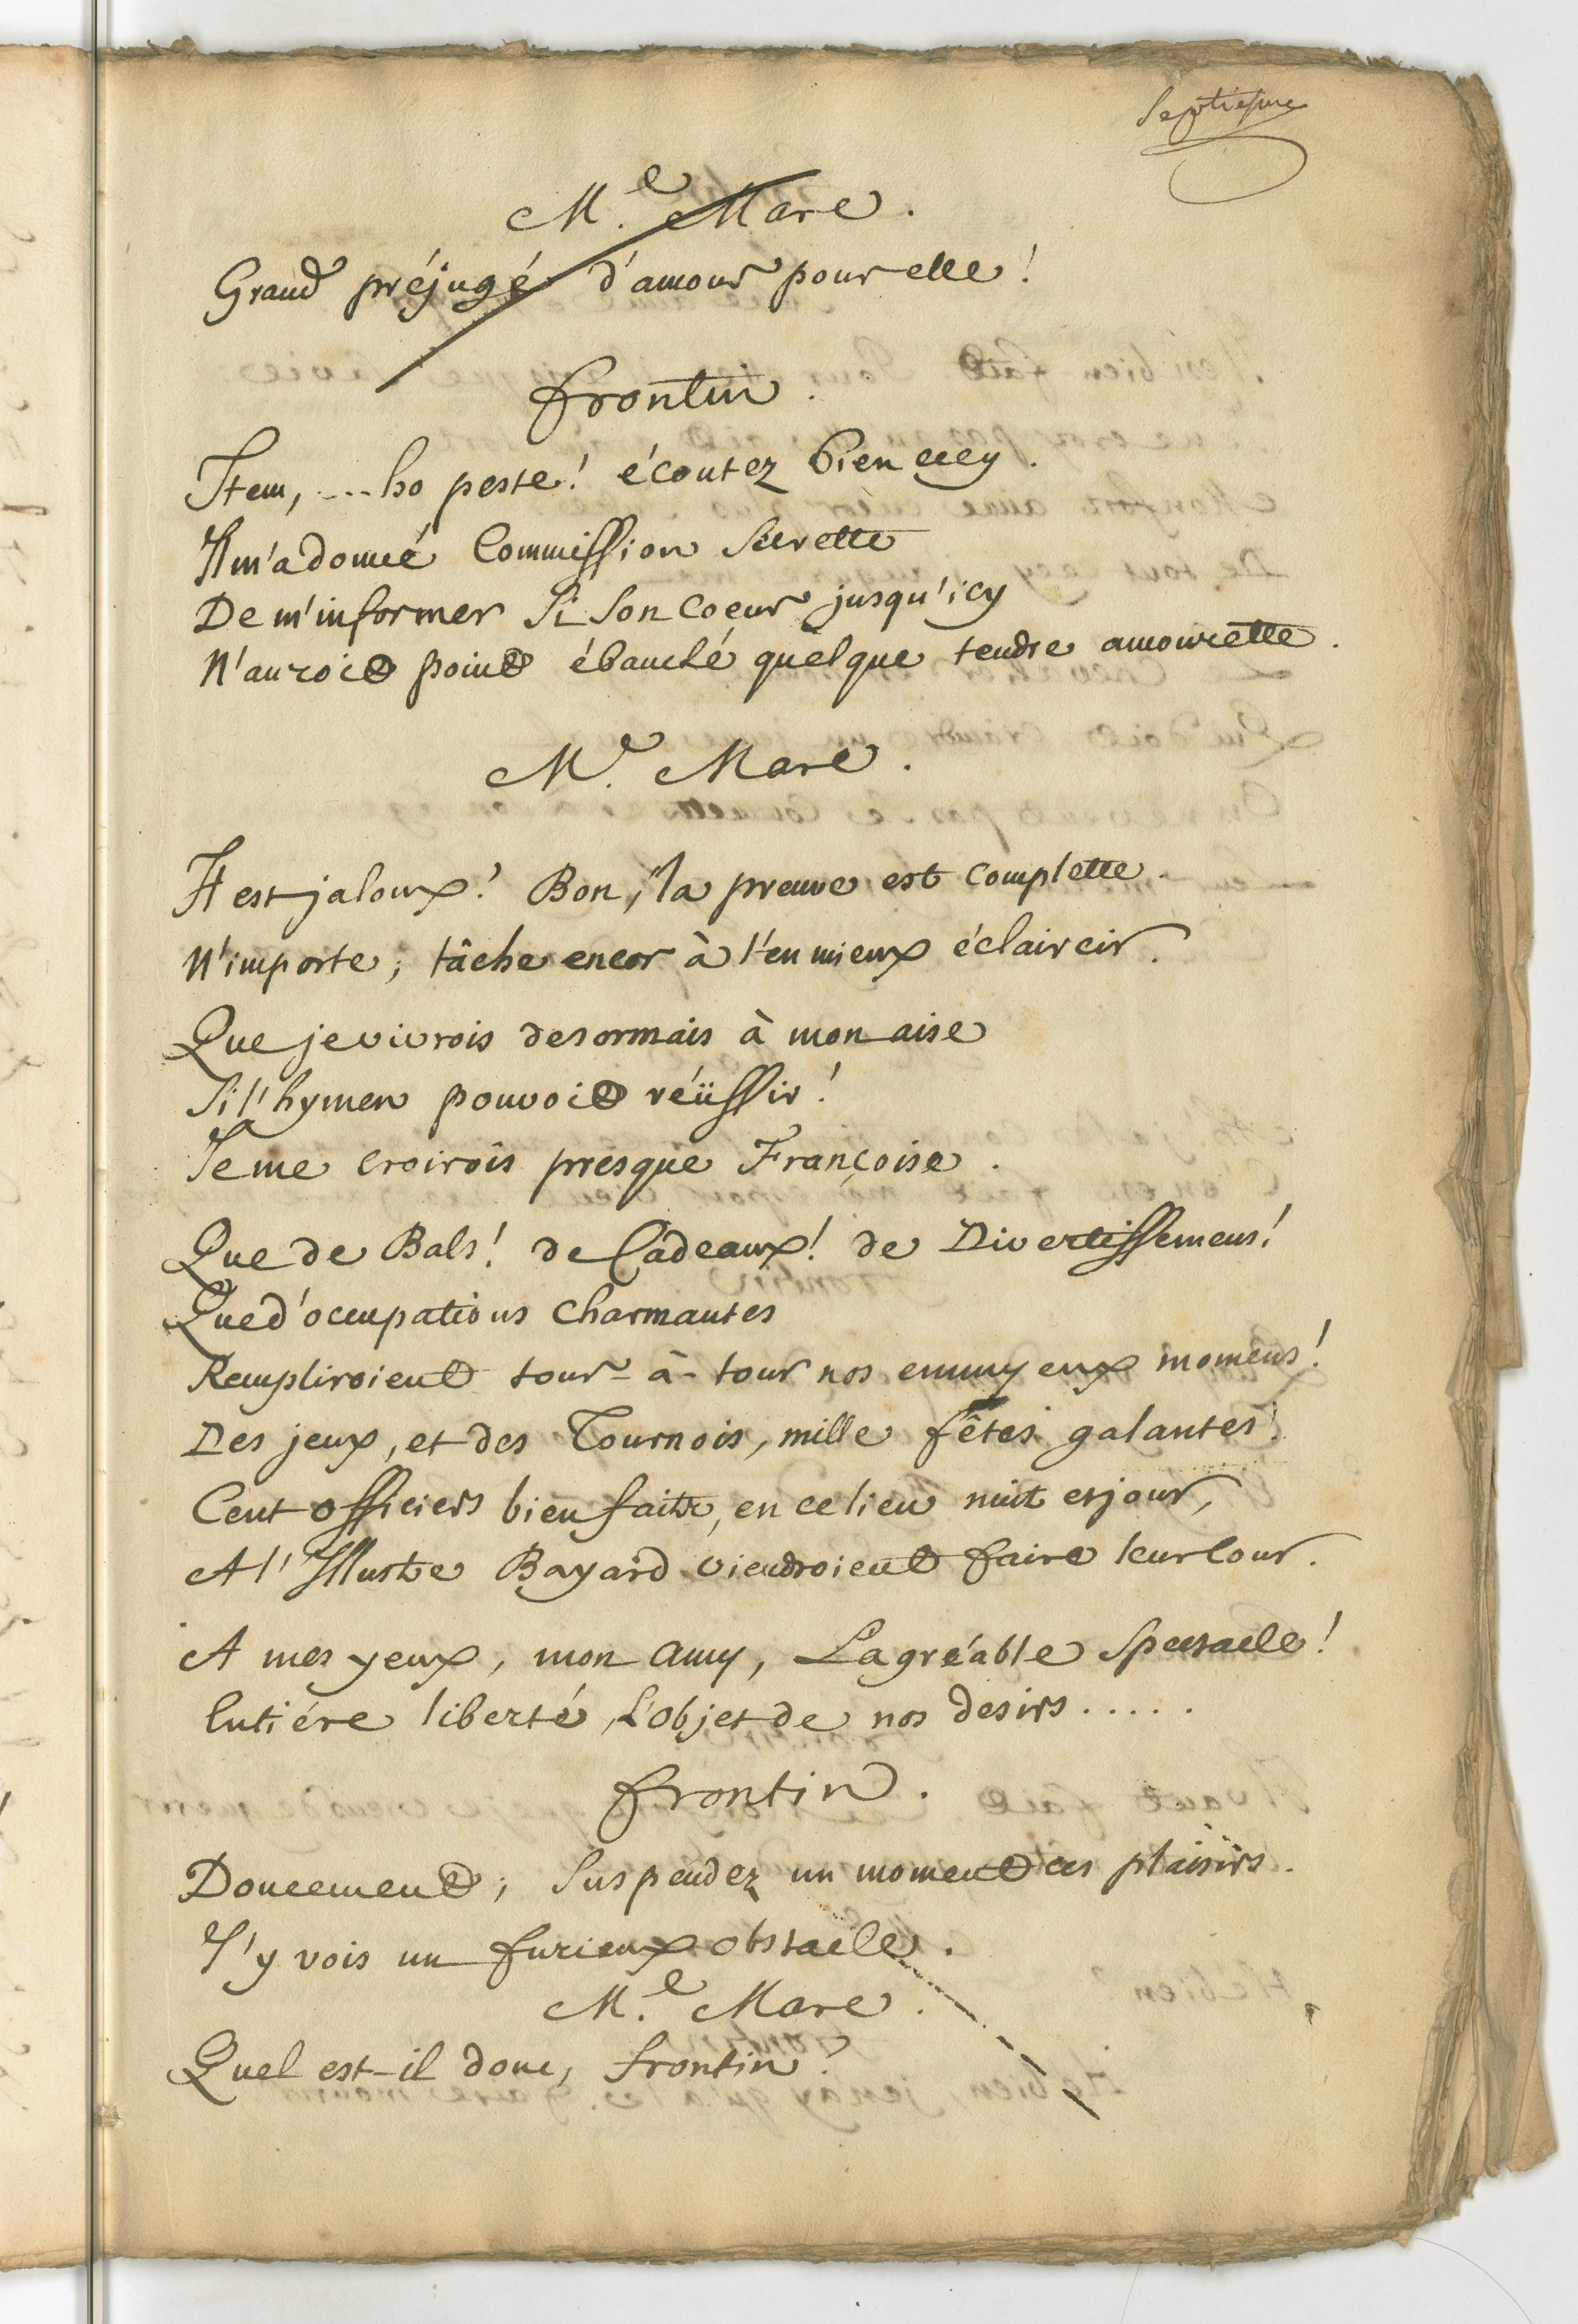 Septiesme
M.e Marc.
Grand préjugé d'amour pour elle!
frontin.
Item, ....ho peste! écoutez bien cecy.
Il m'a donné Commission Secrette
De m'informer Si Son Coeur jusqu'icy
N'auroit point ébauché quelque tendre amourette.
M.e Marc.
Il est jaloux! Bon, la preuve est Complette.
N'importe; tâche encor à t'en mieux éclaircir.
Que je vivrois desormais à mon aise
Si l'hymen pouvoit réüssir!
Je me croirois presque Françoise.
Que de Bals! de Cadeaux! de Divertissemens!
Que d'occupations Charmantes
Rempliroient tour-à-tour nos ennuyeux momens!
Des jeux, et des Tournois, mille fêtes galantes!
Cent officiers bien faits, en ce lieu nuit et jour,
A l'Illustre Bayard viendroient faire leur Cour.
A mes yeux, mon amy, L'agréable Spectacle!
Entiére liberté, L'objet de nos desirs.....
frontin.
Doucement; Suspendez un moment ces plaisirs.
J'y vois un furieux obstacle.
M.e Marc.
Quel est-il donc, frontin?